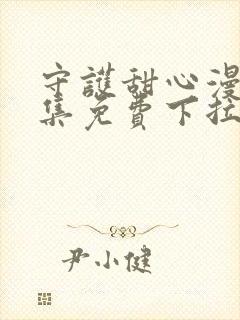 守護甜心漫
集免費下拉
尹小健